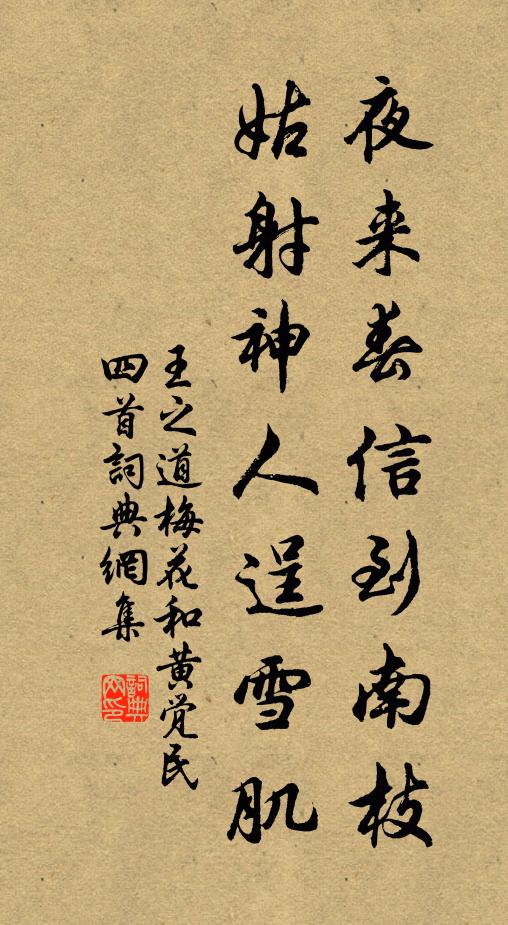 夜来春信到南枝
姑射神人逞雪肌
王之道梅花和黄觉民
四首詞典網集
詞典
网印